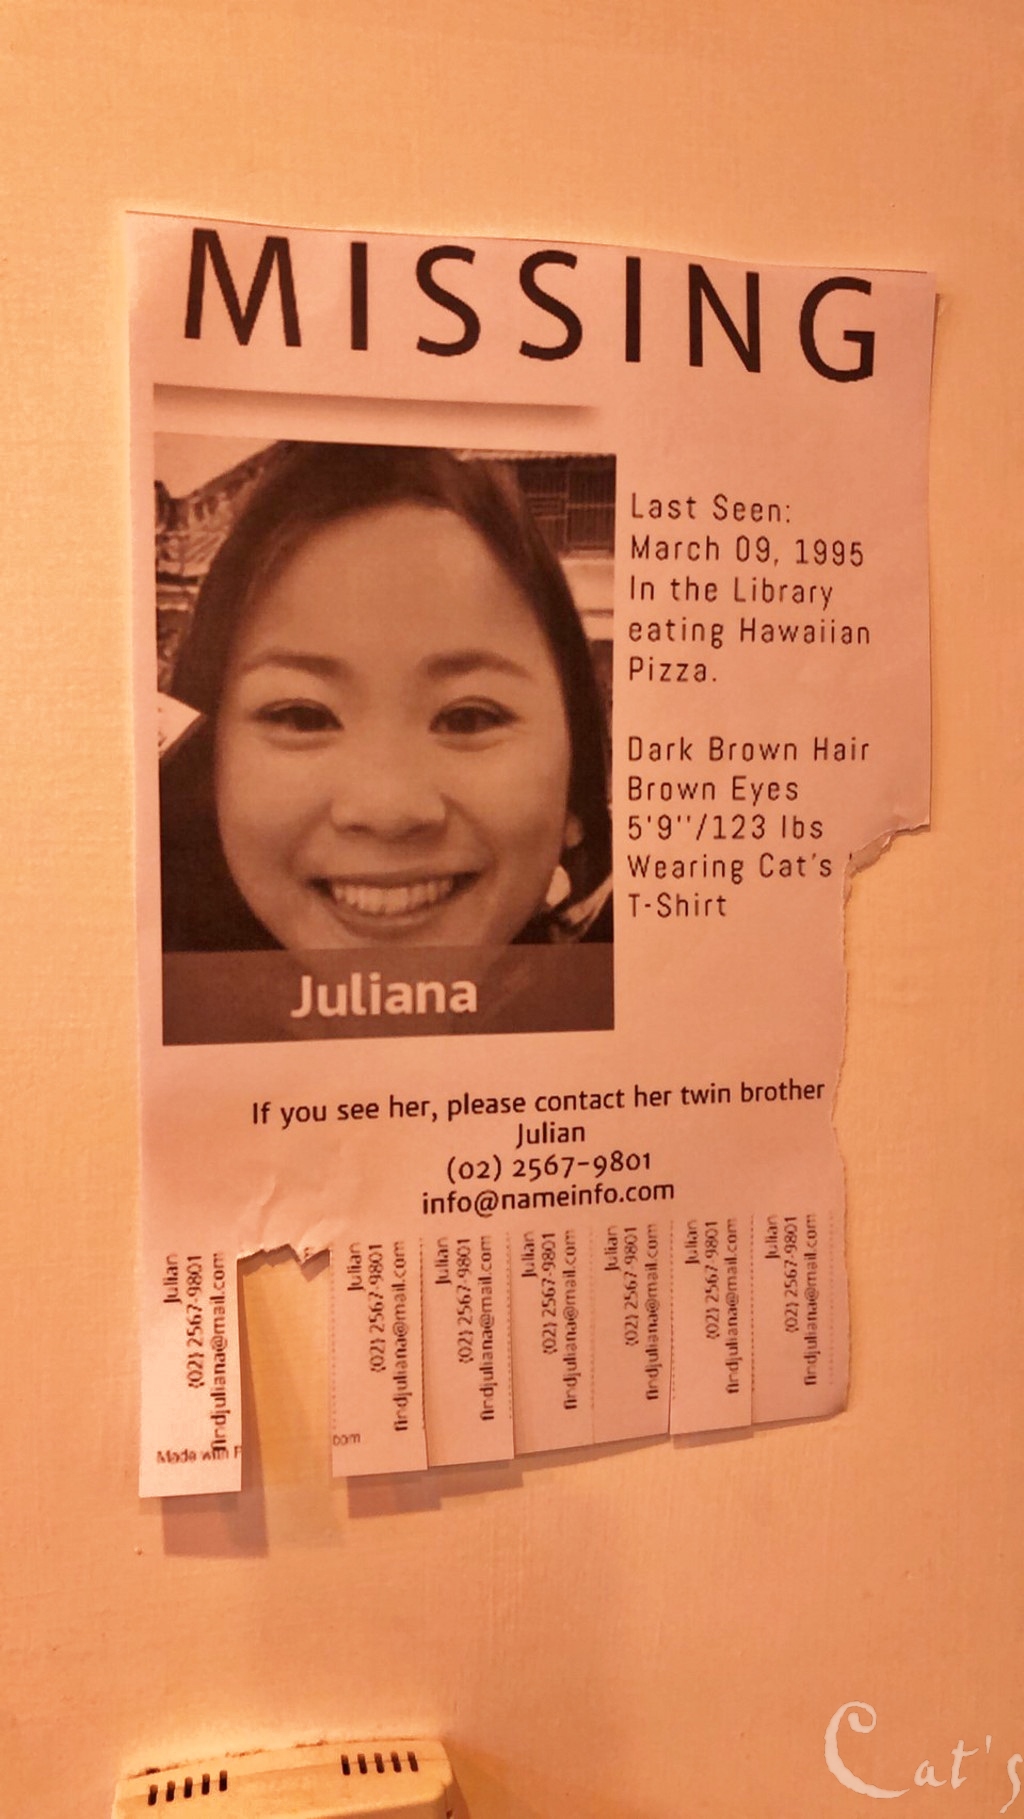 MISSING
Last Seen:
March 09, 1995
In the Library
eating Hawaiian
Pizza.
Dark Brown Hair
Brown Eyes
5'9''/123 lbs
Wearing Cat's
T-Shirt
Juliana
If you see her, please contact her twin brother
Julian
(02) 2567-9801
info@nameinfo.com
Julian
(02) 2567-9801
findjuliana@mail.com
Julian
(02) 2567-9801
findjuliana@mail.com
Julian
(02) 2567-9801
findjuliana@mail.com
Julian
(02) 2567-9801
findjuliana@mail.com
Julian
(02) 2567-9801
findjuliana@mail.com
Julian
(02) 2567-9801
findjuliana@mail.com
Julian
(02) 2567-9801
findjuliana@mail.com
Made with
Cat's